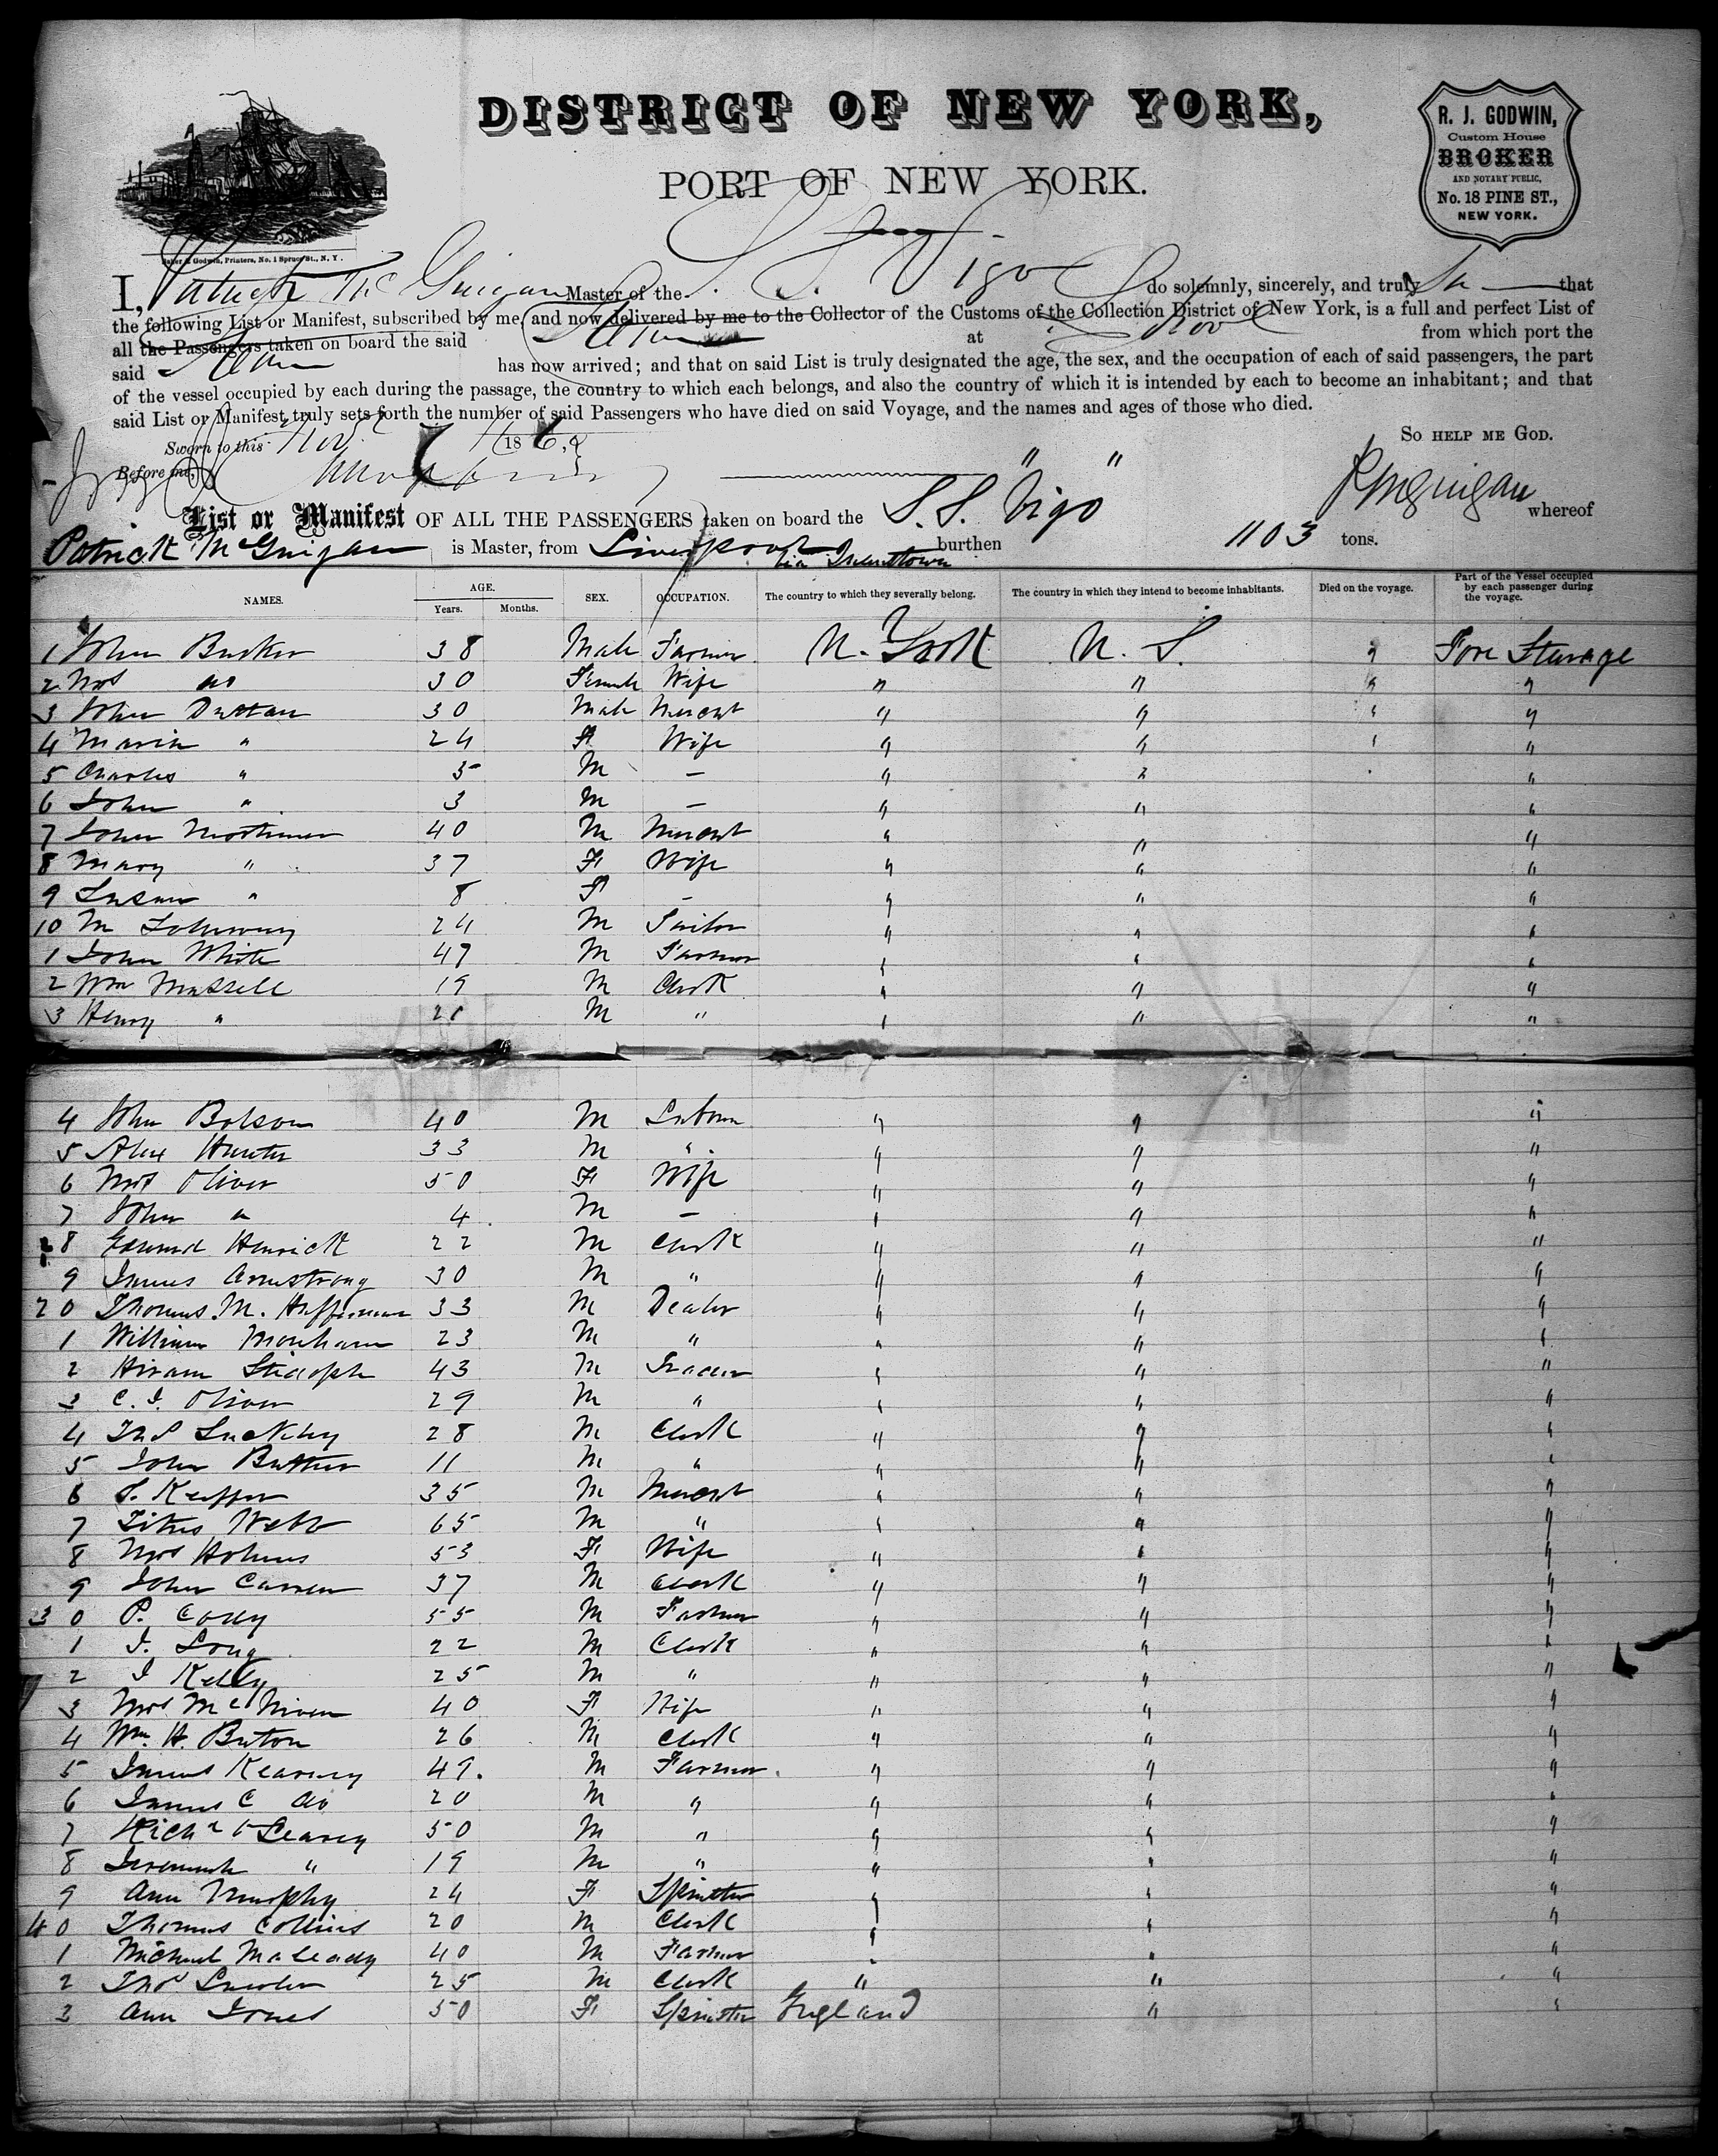 DISTRICT OF NEW YORK,
PORT OF NEW YORK.
R. J. GODWIN,
Custom House
BROKER
AND NOTARY PUBLIC,
No. 18 PINE ST.,
NEW YORK.
Baker & Godwin, Printers, No. 1 Spruce St., N. Y.
I, Patrick McGuigan Master of the S. S. Vigo do solemnly, sincerely, and truly that
the following List or Manifest, subscribed by me, and now delivered by me to the Collector of the Customs of the Collection District of New York, is a full and perfect List of
all the Passengers taken on board the said at from which port the
said has now arrived; and that on said List is truly designated the age, the sex, and the occupation of each of said passengers, the part
of the vessel occupied by each during the passage, the country to which each belongs, and also the country of which it is intended by each to become an inhabitant; and that
said List or Manifest truly sets forth the number of said Passengers who have died on said Voyage, and the names and ages of those who died.
SO HELP ME GOD.
Sworn to this Nov 186
Before me,
P McGuigan
List or Manifest OF ALL THE PASSENGERS taken on board the S. S. "Vigo" whereof
Patrick McGuigan is Master, from Liverpool via Queenstown burthen 1103 tons.
NAMES. AGE. SEX. OCCUPATION. The country to which they severally belong. The country in which they intend to become inhabitants. Died on the voyage. Part of the Vessel occupied by each passenger during the voyage.
Years. Months.
1 John 38 Male Farmer N. York U. S. " Fore Steerage
2 Mrs do 30 Female Wife " " " "
3 John 30 Male " " " "
4 Maria " 24 F Wife " " "
5 Charles " 5 M – " " "
6 John " 3 M – " " "
7 John Mortimer 40 M " " "
8 Mary " 37 F Wife " " "
9 Susan " 8 F – " " "
10 M 24 M Tailor " " "
1 John White 47 M Farmer " " "
2 Wm 19 M Clerk " " "
3 Henry " M " " " "
4 John 40 M Labour " " "
5 Alex Hunter 33 M " " " "
6 Mrs Oliver 50 F Wife " " "
7 John " 4 M – " " "
8 Edward 22 M Clerk " " "
9 James Armstrong 30 M " " " "
20 Thomas M. Heffernan 33 M Dealer " " "
1 William 23 M " " " "
2 Hiram 43 M " " "
3 C. J. Oliver 29 M " " " "
4 28 M Clerk " " "
5 John 11 M " " " "
6 35 M " " "
7 Titus Webb 65 M " " " "
8 Mrs Holmes 53 F Wife " " "
9 John 37 M Clerk " " "
30 P. Cody 55 M Farmer " " "
1 J. Long 22 M Clerk " " "
2 J Kelly 25 M " " " "
3 Mrs McNiven 40 F Wife " " "
4 Wm. H. 26 M Clerk " " "
5 James Kearney 49. M Farmer. " " "
6 James C do 20 M " " " "
7 50 M " " " "
8 Jeremiah " 19 M " " " "
9 Ann Murphy 24 F Spinster " " "
40 Thomas Collins 20 M Clerk " " "
1 Michael 40 M Farmer " " "
2 25 M Clerk " " "
3 Ann Jones 50 F Spinster England " "